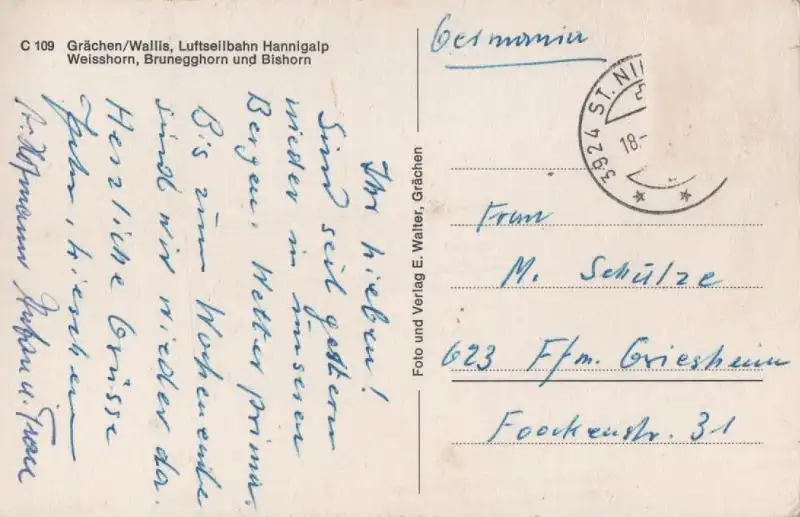 C 109 Grächen/Wallis, Luftseilbahn Hannigalp
Weisshorn, Brunegghorn und Bishorn
Ihr Lieben!
Sind seit gestern
wieder in unseren
Bergen. Wetter prima.
Bis zum Wochenende
sind wir wieder da.
Herzliche Grüsse
A. Hofmann u. Frau
Foto und Verlag E. Walter, Grächen
Germania
3924 ST. NI
18.-
Frau
M. Schulze
623 F/m. Griesheim
Foockenstr. 31